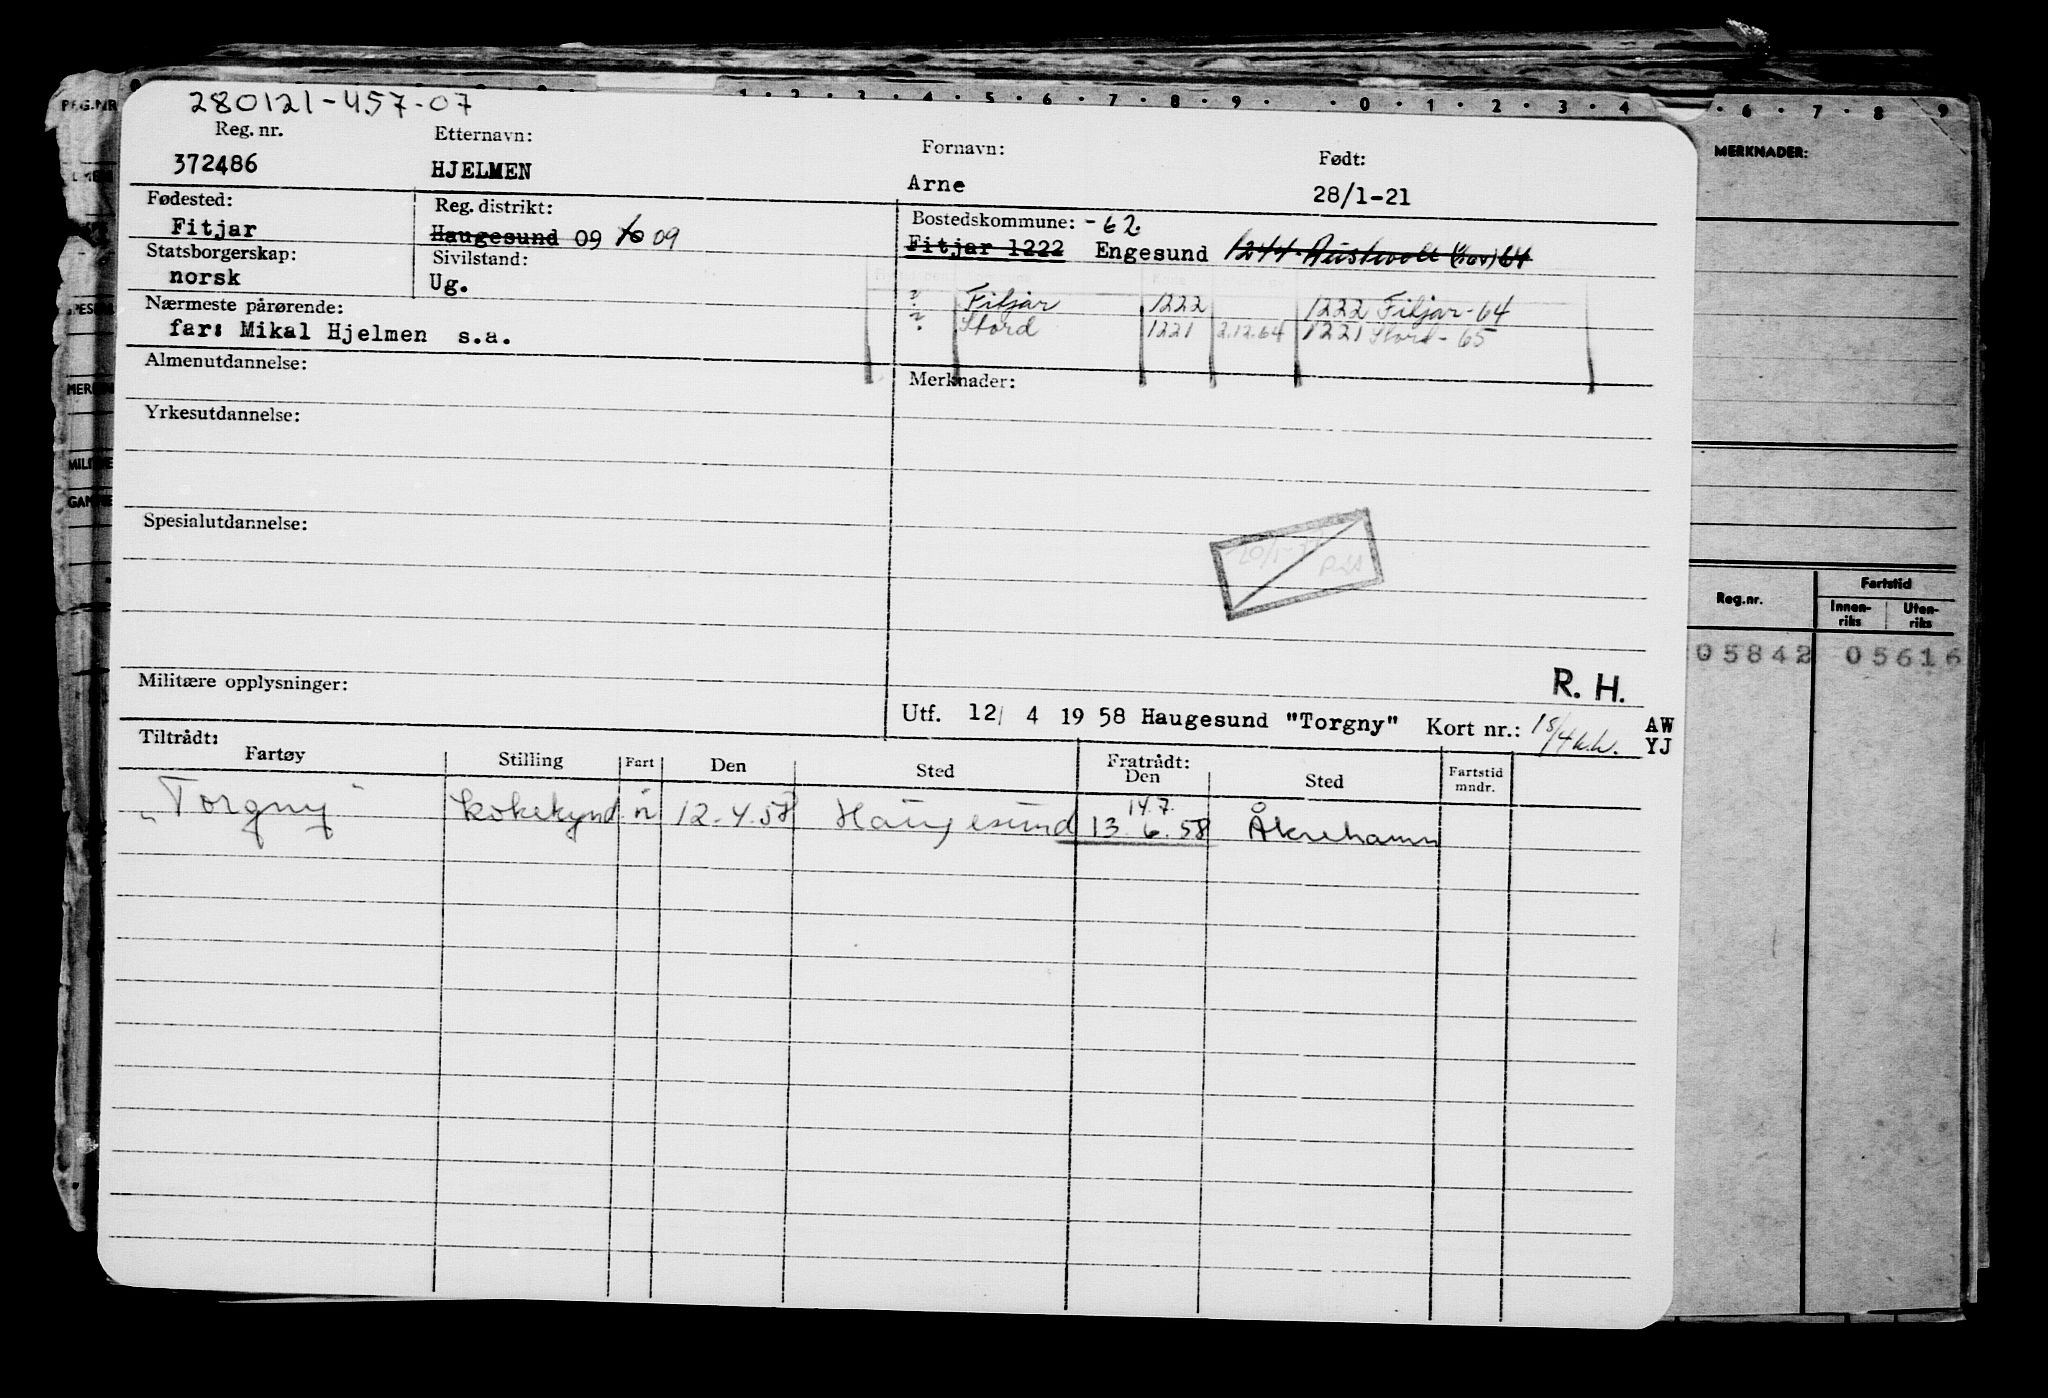 280121-457-07
Reg. nr. Etternavn: Fornavn: Født:
372486 HJELMEN Arne 28/1-21
Fødested: Reg. distrikt: Bostedskommune: -62.
Fitjar Haugesund 09 10 09 Fitjar 1222 Engesund 1244 Austevoll 64
Statsborgerskap: Sivilstand:
norsk Ug.
? Fitjar 1222 1222 Fitjar-64
Nærmeste pårørende: ? Stord 1221 2.12.64 1221 Stord-65
far: Mikal Hjelmen s.a.
Almenutdannelse: Merknader:
Yrkesutdannelse:
Spesialutdannelse:
R. H.
Militære opplysninger:
Utf. 12/ 4 19 58 Haugesund "Torgny" Kort nr.: AW
YJ
Tiltrådt: Fratrådt:
Fartøy Stilling Fart Den Sted Den Sted Fartstid mndr.
14.7.
"Torgny" kokekynd. n 12.4.58 Haugesund 13.6.58 Åkrehamn
REG.NR 1 2 3 4 5 6 7 8 9 0 1 2 3 4 6 7 8 9
MERKNADER:
Reg.nr. Fartstid
Innen-riks Uten-riks
05842 05616